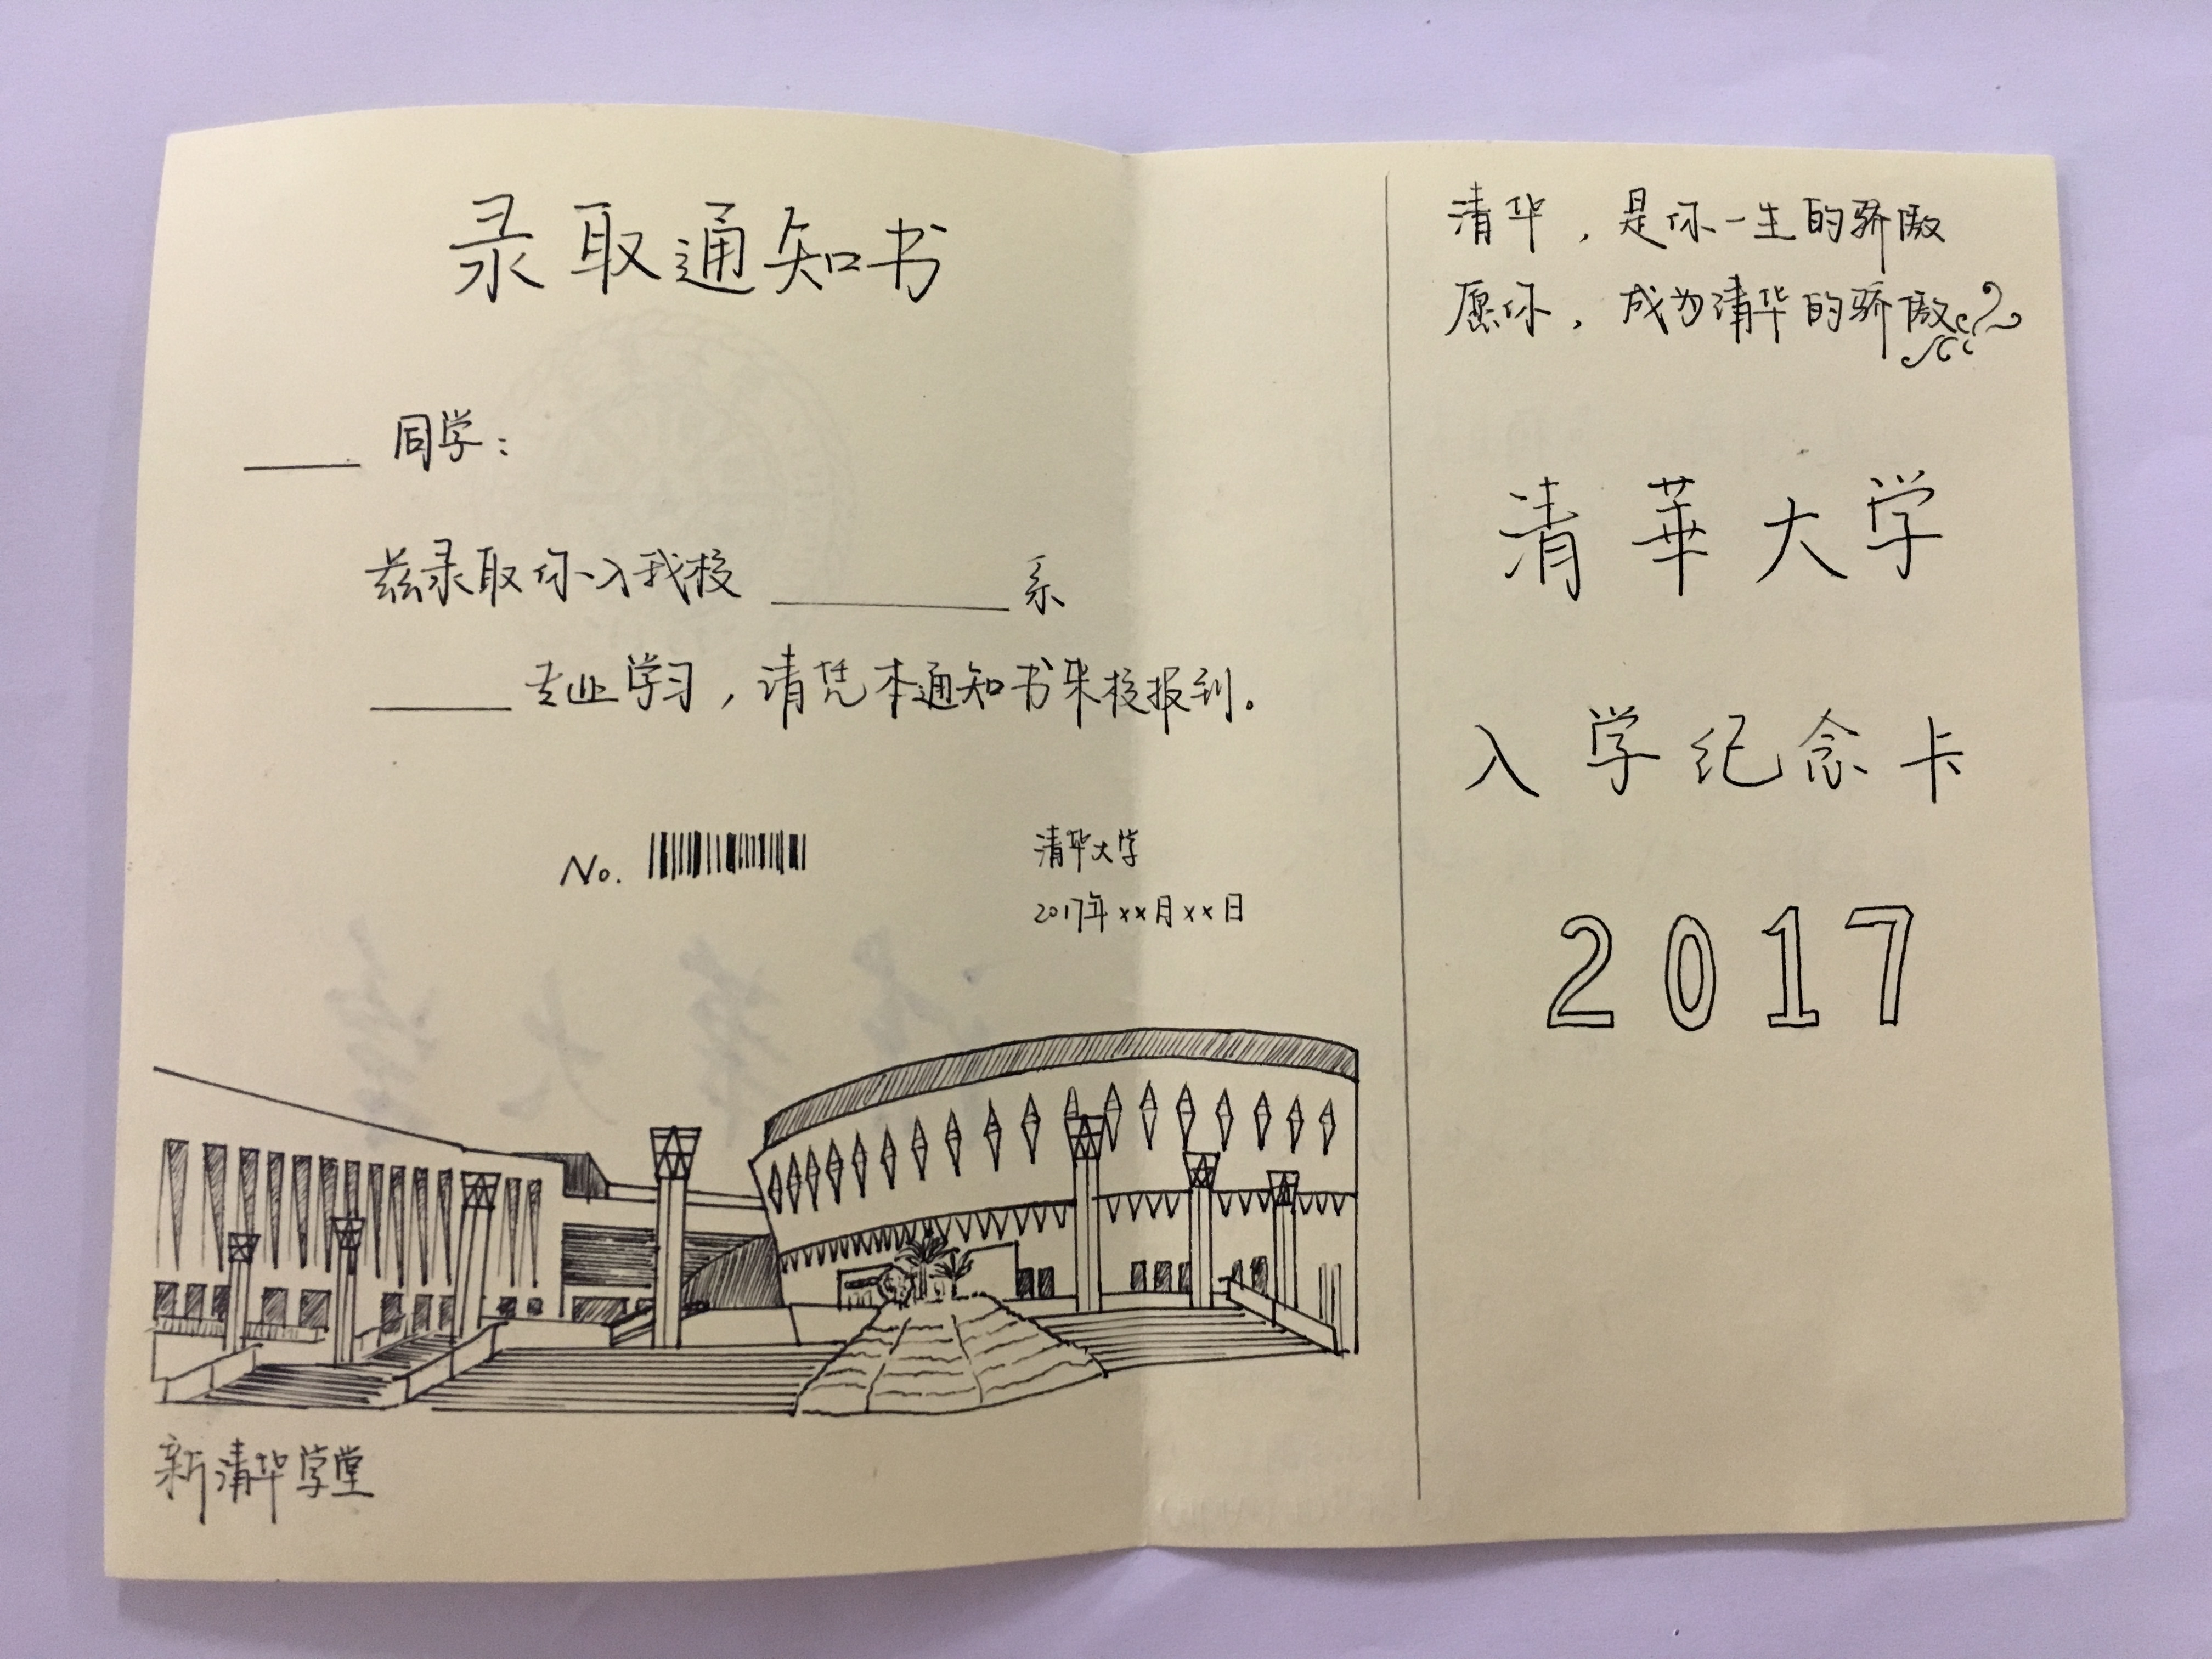 录取通知书
____ 同学：
兹录取你入我校 ________ 系
____ 专业学习，请凭本通知书来校报到。
No.
清华大学
2017年××月××日
新清华学堂
清华，是你一生的骄傲
愿你，成为清华的骄傲
清華大学
入学纪念卡
2017